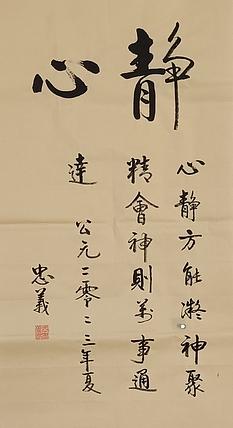 静心
心静方能凝神聚
精會神則萬事通
達 公元二零二三年夏
忠義